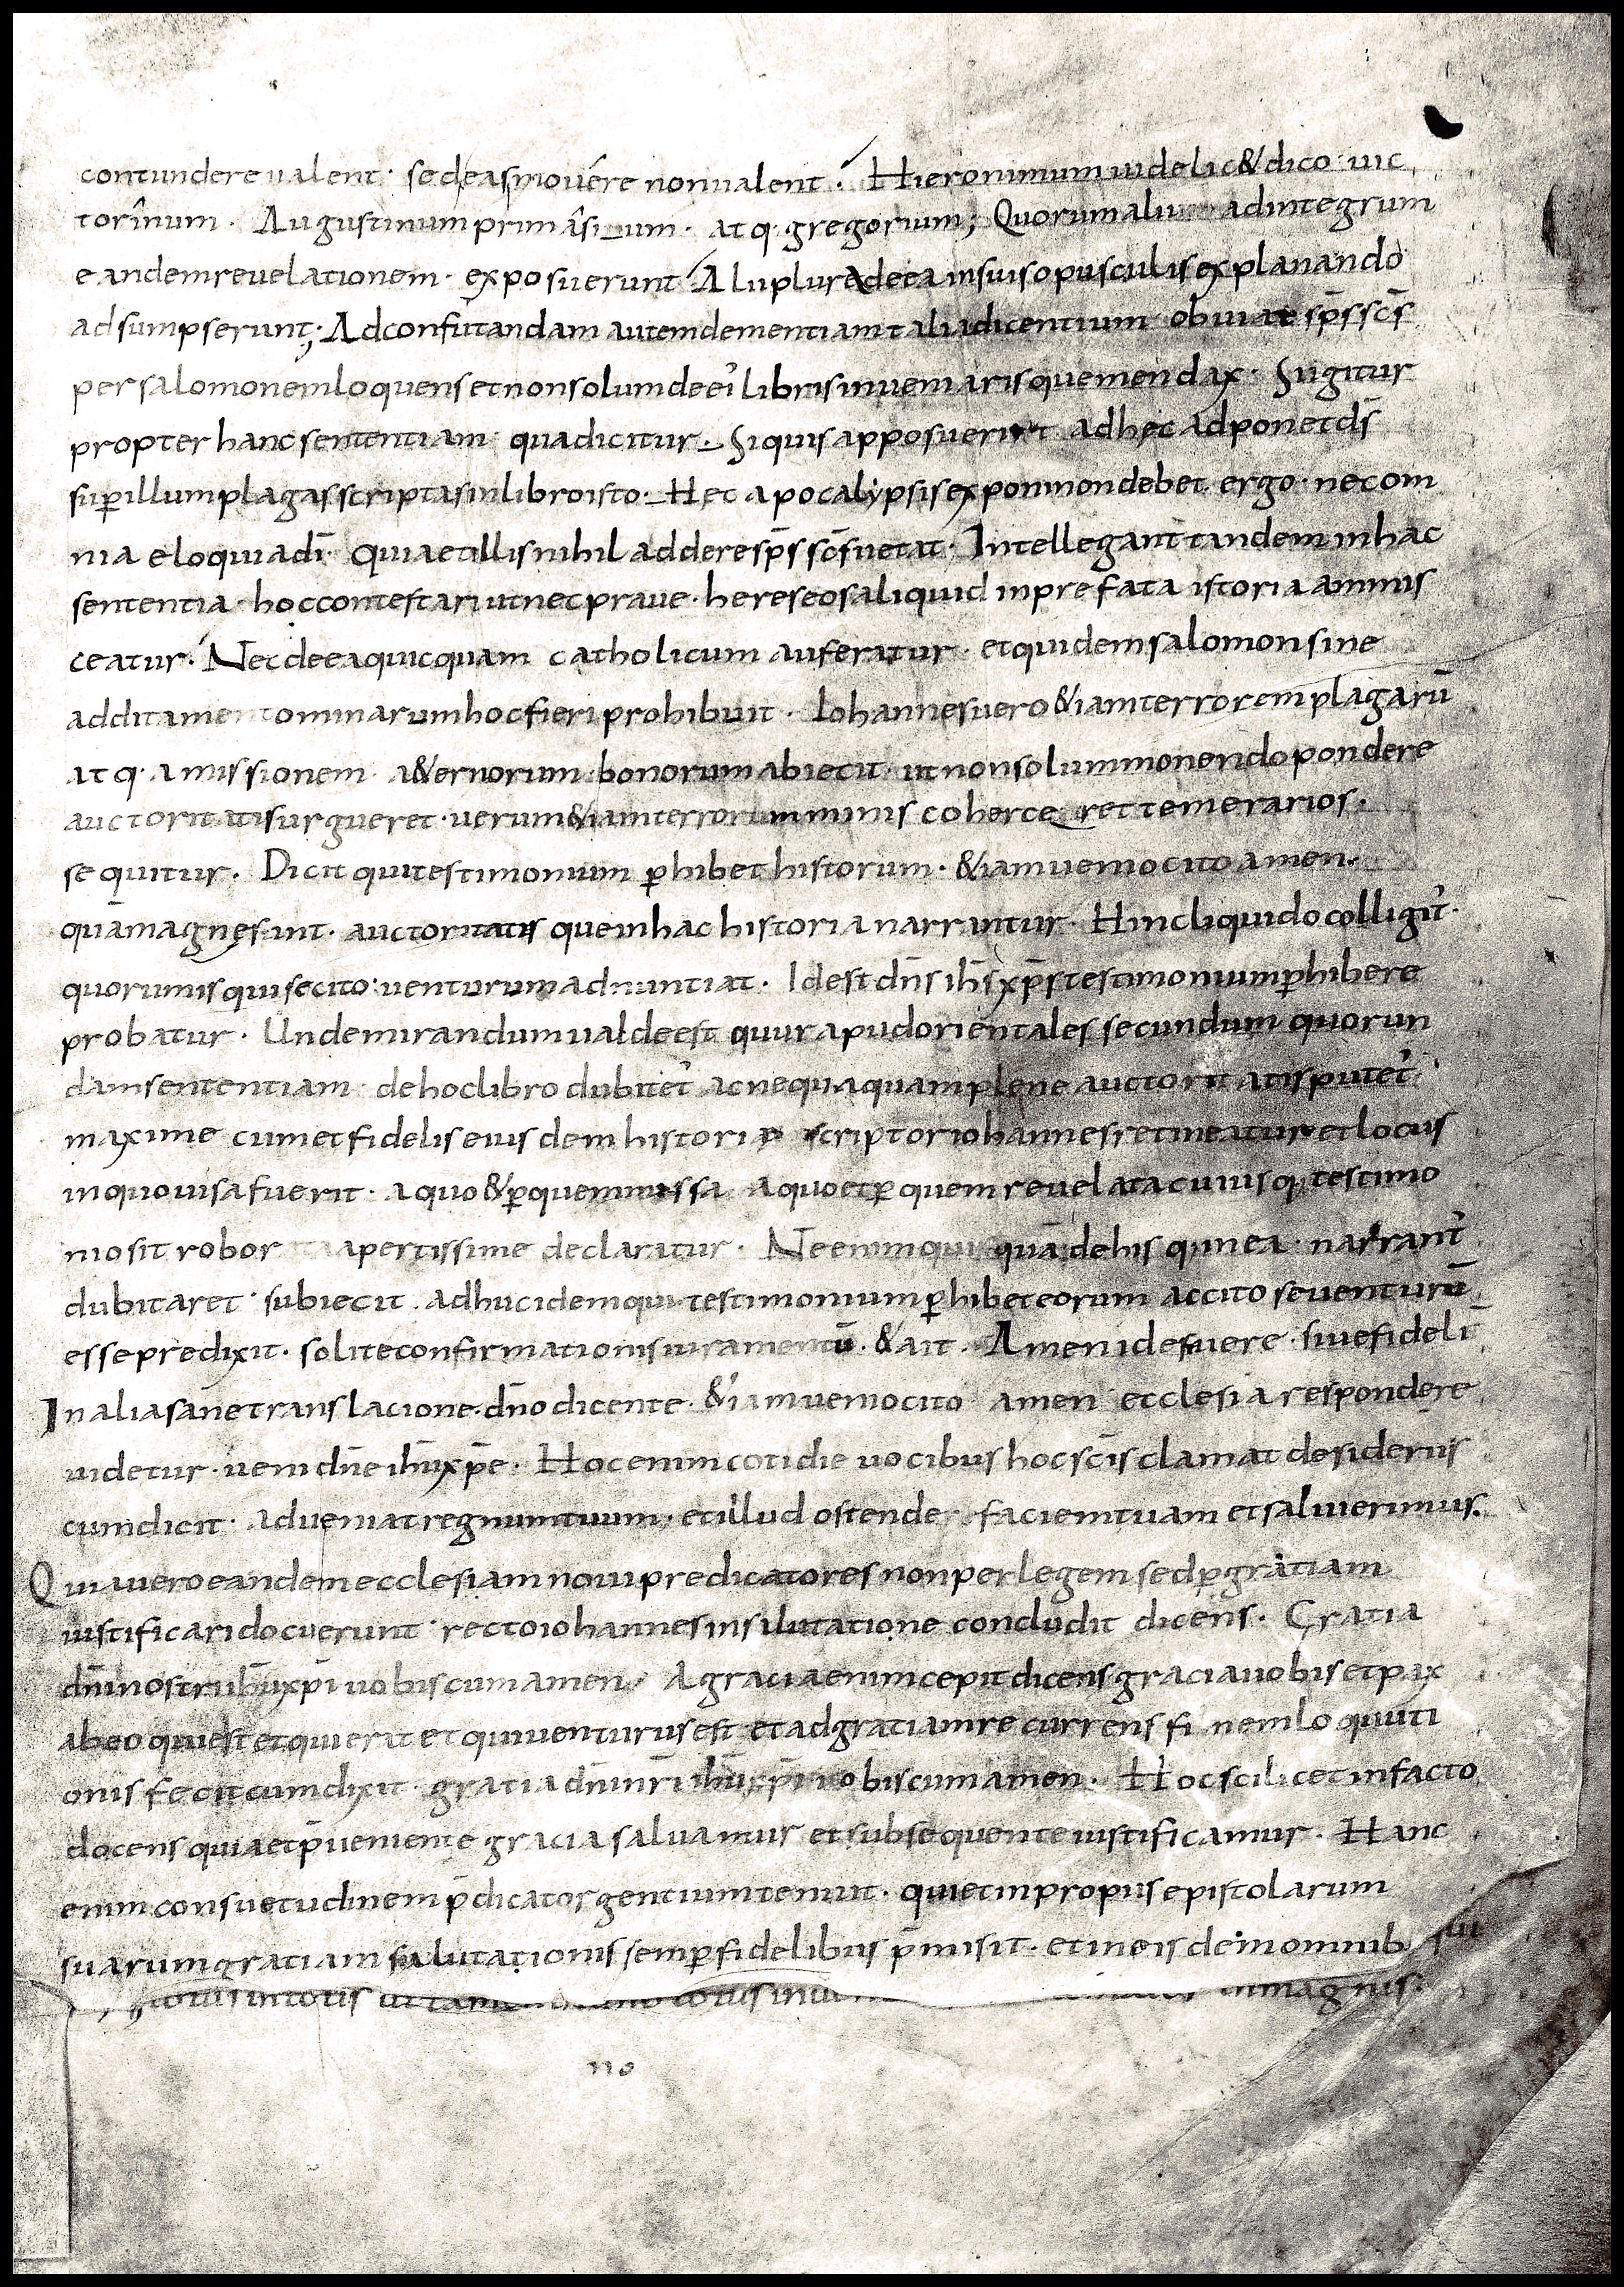 contundere ualent· sedeas mouére non ualent· Hieronimum uidelic&dico· uic
torînum· Augustinum primâsi_um· atq· gregorium; Quorum alii ad integrum
eandem reuelationem· exposuerunt Alii plura deea insuis opusculis explanando
adsumpserunt; Ad confutandam autem dementiam talia dicentium obuiat sp̄s sc̄s
per salomonem loquens et non solum de ei libris inueniaris que mendax· Si igitur
propter hanc sententiam· qua dicitur· Siquis apposuerint adhęc adponet d̄s
sup̄ illum plagas scriptas in libro isto· Hec apocalypsis exponi non debet ergo· nec om
nia eloquia dī· Quia et illis nihil addere sp̄s sc̄s uetat· Intellegant tandem in hac
sententia· hoc contestari ut nec praue· hereseos aliquid in prefata istoria ammis
ceatur· Nec deea quicquam catholicum auferatur· et quidem salomon sine
additamento minarum hoc fieri prohibuit· Iohannes uero &iam terrorem plagarū
atq· amissionem a&ernorum bonorum abiecit· ut non solum monendo pondere
auctoritatis urgueret· uerum &iam terrorum minis coherce ret temerarios·
sequitur· Dicit qui testimonium p̄hibet historum· &iam uenio cito amen·
quā magnę sint· auctoritatis que in hac historia narrantur· Hinc liquido colligit̄·
quorum is qui se cito· uenturum adnuntiat· Idest dn̄s ih̄s xp̄s testimonium p̄hibere
probatur· Unde mirandum ualde est quur apud orientales secundum quorun
dam sententiam· de hoc libro dubitet̄ ac nequaquam plene auctoritatis putet̄·
maxime cum et fidelis eiusdem historię scriptor iohannes retineatur et locus
in quo uisa fuerit· a quo &p̄ quem missa a quo et p̄ quem reuelata cuiusq· testimo
nio sit robor ta apertissime declaratur· Ne enim quis quā de his q; in ea· narrant̄
dubitaret· subiecit· adhuc idem qui testimonium p̄hibet eorum ac cito se uenturū
esse predixit· solite confirmationis iuramentū· &ait· Amen idest uere· siue fidelit̄
In alia sane translacione· dn̄o dicente· &iam uenio cito amen ecclesia respondere
uidetur· ueni dn̄e ih̄u xp̄e· Hoc enim cotidie uocibus hoc sc̄is clamat desideriis
cum dicit· adueniat regnum tuum· et illud ostende faciem tuam et salui erimus·
Quia uero eandem ecclesiam noui predicatores non per legem sed p̄ gratiam
iustificari docuerunt· recto iohannes in salutatione concludit dicens· Gratia
dn̄i nostri ih̄u xp̄i uobiscum amen· A gracia enim cepit dicens gracia uobis et pax
ab eo qui est et qui erat et qui uenturus est et ad gratiam recurrens finem loquuti
onis fecit cum dixit· gratia dn̄i nr̄i ih̄u xp̄i uobiscum amen· Hoc scilicet in facto
docens quia et p̄ueniente gracia saluamur et subsequente iustificamur· Hanc
enim consuetudinem p̄dicator gentium tenuit· qui et in propriis epistolarum
suarum gratiam salutationis semp̄ fidelibus p̄misit· et in eisdem omnib· sui
totus in totis magnis·